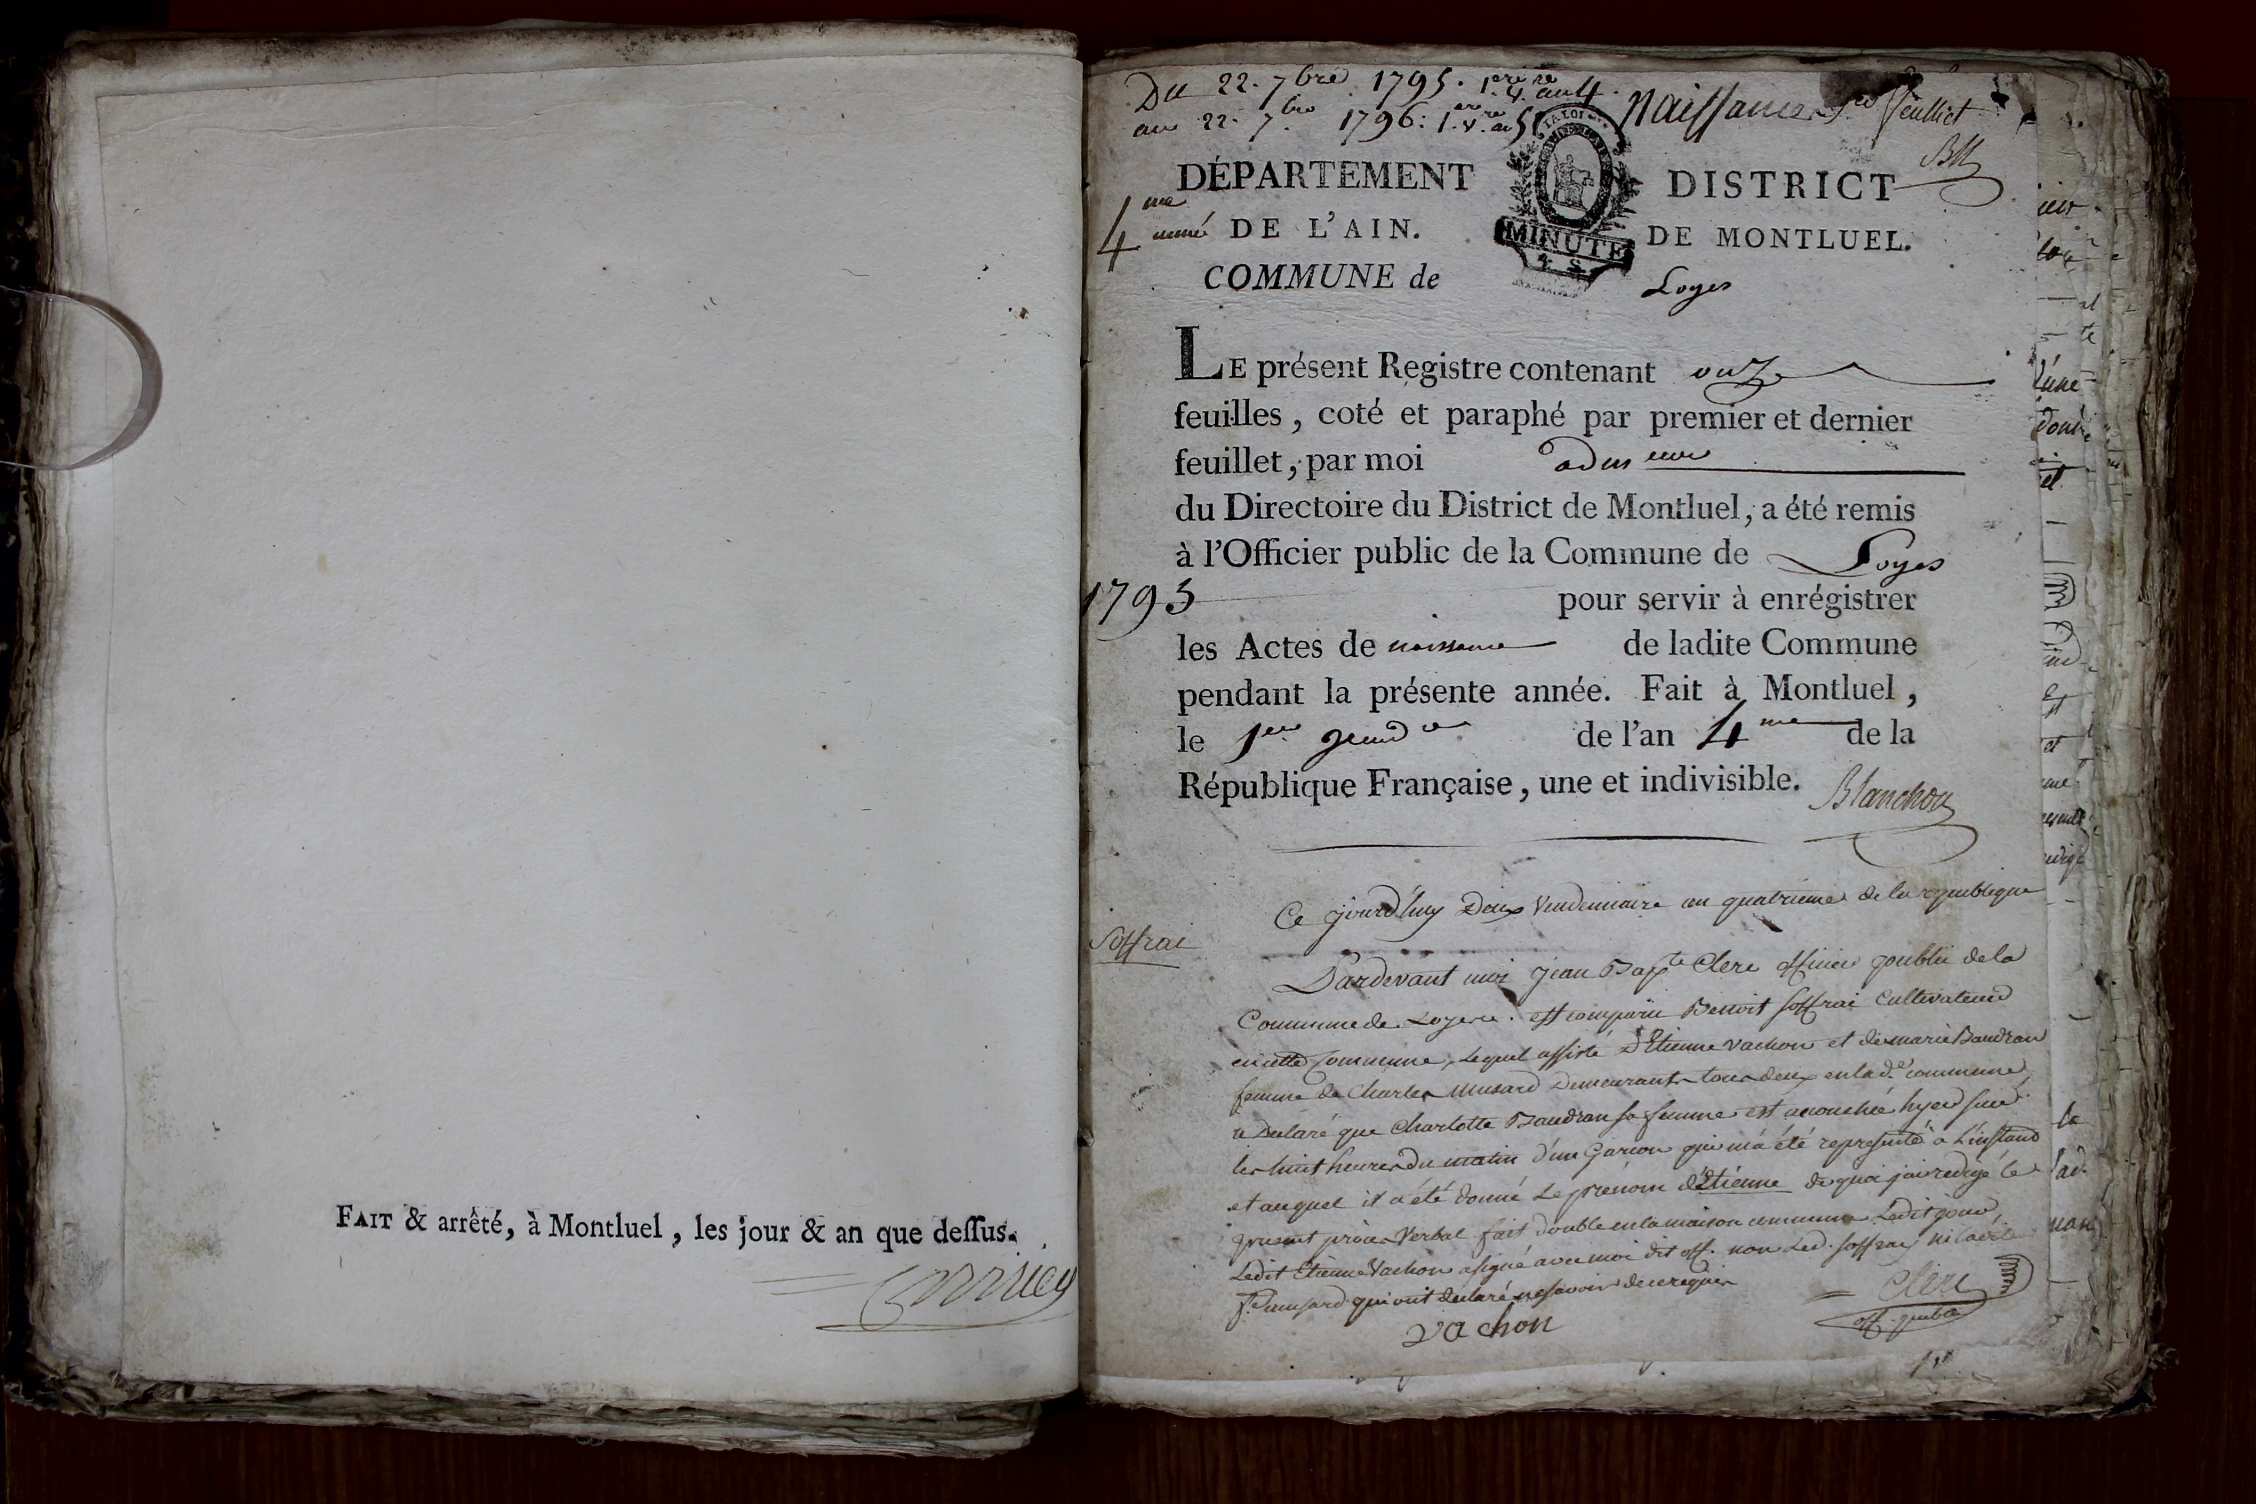 FAIT & arrêté, à Montluel, les jour & an que dessus.
Du 22. 7bre 1795. 1er ve an 4.
au 22. 7bre 1796. 1er ve an 5
Naissances
feuillet
DÉPARTEMENT
DE L'AIN.
4me année
LA LOI
MINUTE
4 S.
DISTRICT
DE MONTLUEL.
COMMUNE de Loyes
LE présent Registre contenant onze
feuilles, coté et paraphé par premier et dernier
feuillet, par moi adm
du Directoire du District de Montluel, a été remis
à l'Officier public de la Commune de Loyes
1795
pour servir à enrégistrer
les Actes de naissance de ladite Commune
pendant la présente année. Fait à Montluel,
le 1er de l'an 4me de la
République Française, une et indivisible.
Blanchon
Ce jourd'huy Deux Vendemiaire an quatrieme de la republique
Soffrai
Pardevant moi jean Bapte Clerc officier public de la
Commune de Loyes. est comparu Benoit soffrai Cultivateur
en cette Commune, Lequel assisté d'Etienne Vachon et de marie Baudran
femme de Charles Musard Demeurants tous deux en lad.e commune
a Déclaré que Charlotte Baudran sa femme est accouchée hyer sur
les huit heures du matin d'un Garçon qui m'a été représenté à L'instand
et auquel il a été donné Le prénom d'Etienne de quoi j'ai redigé le
présent procès Verbal fait double en la maison commune Ledit jour,
Ledit Etienne Vachon a signé avec moi dit off. non Led. soffray ni ladite
fe musard qui ont declaré ne savoir de ce requis
Clerc
off. public
vachon